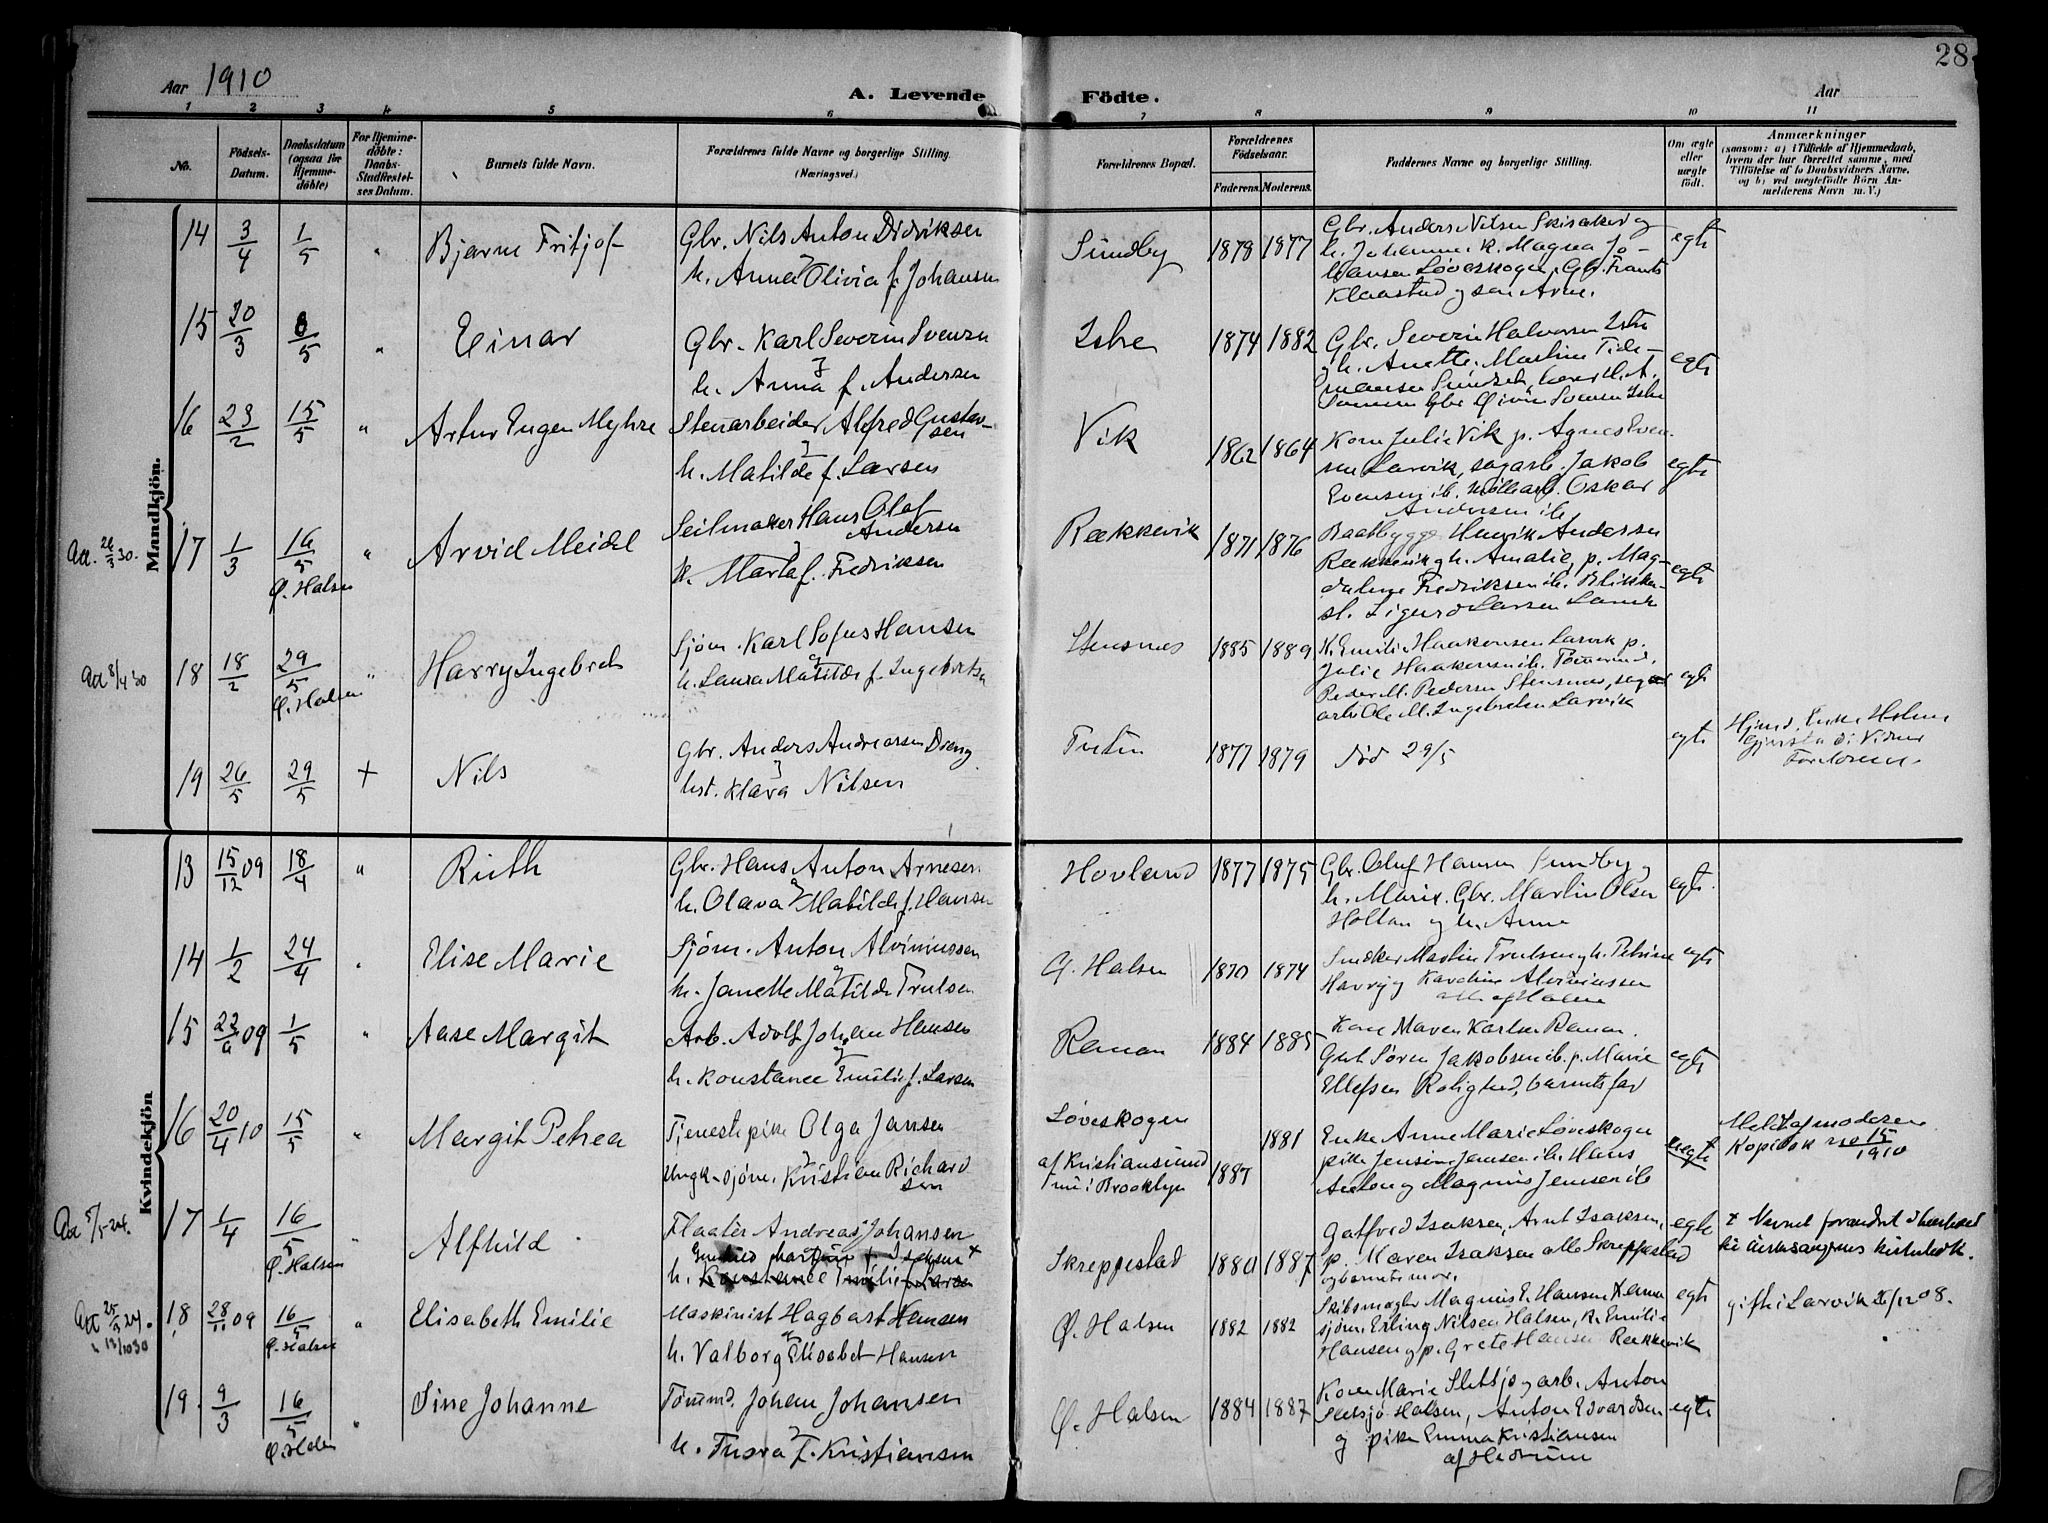 28
Aar 1910
A. Levende Födte.
Aar
1 2 3 4 5 6 7 8 9 10 11
No.
Födsels-Datum.
Daabsdatum (ogsaa for Hjemme-döbte)
For Hjemme-döbte: Daabs-Stadfæstel-ses Datum.
Barnets fulde Navn.
Forældrenes fulde Navne og borgerlige Stilling. (Næringsvei.)
Forældrenes Bopæl.
Forældrenes Födselsaar.
Faderens. Moderens.
Faddernes Navne og borgerlige Stilling.
Om ægte eller uægte födt.
Anmærkninger
(saasom: a) i Tilfælde af Hjemmedaab, hvem der har forrettet samme, med Tilföielse af to Daabsvidners Navne, og b) ved uægtefödte Börn An-melderens Navn m. V.)
Mandkjön.
14 3/4 1/5 " Bjarne Fritjof
Gbr. Nils Anton Didriksen
h. Anna Olivia f. Johansen
Sundby 1878 1877
Gbr. Anders Nilsen Skisaker og
h. Johanne k. Magna Jo-
hansen Løveskogen, Gbr. Frants
Klaastad og søn Arne.
egte
15 20/3 8/5 " Einar
Gbr. Karl Severin Svensen
h. Anna f. Andersen
Istre 1874 1882
Gbr. Severin Halvorsen Istre
h. Anette, Martin Tide-
Gbr Øivin Svensen Istre
egte
16 23/2 15/5 " Artur Eugen Myhre
Stenarbeider Alfred Gustav-
sen
h. Matilde f. Larsen
Vik 1862 1864
Kone Julie Vik p. Agnes Even-
sen Larvik, sagarb. Jakob
Evensen ib. møllearb. Oskar
Andersen ib
egte
Aa. 26/3 30. 17 1/3 16/5 Ø. Halsen " Arvid Meidel
Seilmaker Hans Olaf
Andersen
h. Marta f. Fredriksen
Rækkevik 1871 1876
Baatbygger Henrik Andersen
Rækkevik og h. Amalie, p. Mag-
dalene Fredriksen ib. Blikken-
sl. Sigurd Larsen Larvik
egte
Aa 8/4 30 18 18/2 29/5 Ø. Halsen " Harry Ingebret
Sjøm. Karl Sofus Hansen
h. Laura Matilde f. Ingebretsen
Stensnes 1885 1889
K. Emilie Haakonsen Larvik p.
Julie Haakonsen ib. Tømmermd.
Peder M. Pedersen Stensnes, sag-
arb Ole M. Ingebretsen Larvik
egte
19 26/5 29/5 + Nils
Gbr. Anders Andreassen Dreng
hst. Klara Nilsen
Tutin 1877 1879
død 29/5
egte
Hjmd. Enke Helene
Gjerstad i Vidner
Forældrene.
Kvindekjön
13 15/12 09 18/4 " Ruth
Gbr. Hans Anton Arnesen
h. Olava Matilde f. Hansen
Hovland 1877 1875
Gbr. Oluf Hansen Sundby og
h. Marie. Gbr. Martin Olsen
Holtan og h. Anna
egte
14 1/2 24/4 " Elise Marie
Sjøm. Anton Alviniussen
h. Janette Matilde Trulsen
Ø. Halsen 1870 1874
Snedker Martin Trulsen og h. Petrine
Harry og Karoline Alviniussen
alle af Halsen
egte
15 22/9 09 1/5 " Aase Margit
Arb. Adolf Johan Hansen
h. Konstance Emilie f. Larsen
Raman 1884 1885
Kone Maren Karlsen Raman.
Gut Søren Jakobsen ib. p. Marie
Ellefsen Rolighed, barnets far
egte
16 20/4 10 15/5 " Margit Petrea
Tjenestepike Olga Jansen
Ungk. sjøm. Kristian Richard
sen
Løveskogen
af Kristiansund
nu i Brooklyn 1887 1881
Enke Anne Marie Løveskogen
pike Jensine Jensen ib. Hans
Anton og Magnus Jensen ib
uegte
Meldt af moderen
Kopibok no 15/1910
Aa 5/5 24. 17 1/4 16/5 Ø. Halsen " Alfhild
Flaatør Andreas Johansen
h. Konstance Emilie f. Larsen
Skreppestad 1880 1887
Gotfred Isaksen, Arnt Isaksen,
p. Maren Isaksen alle Skreppestad
og barnets mor.
egte
+ Navnet forandret i henhold
til kirkesangerens kirkebok.
Aa 25/3 24. " 13/10 30 18 28/11 09 16/5 Ø. Halsen " Elisabeth Emilie
Maskinist Hagbart Hansen
h. Valborg Elisabet Hansen
Ø. Halsen 1882 1882
Skibsmægler Magnus E. Hansen
sjøm. Erling Nilsen Halsen, k. Emilie
Hansen og p. Grete Hansen Rækkevik
egte
gift i Larvik 26/12 08.
19 9/3 16/5 Ø. Halsen " Sine Johanne
Tømmd. Johan Johansen
h. Thora f. Kristiansen
Ø. Halsen 1884 1887
Kone Marie Sletsjø og arb. Anton
Sletsjø Halsen, Anton Edvardsen
og pike Emma Kristiansen
af Hedrum
egte